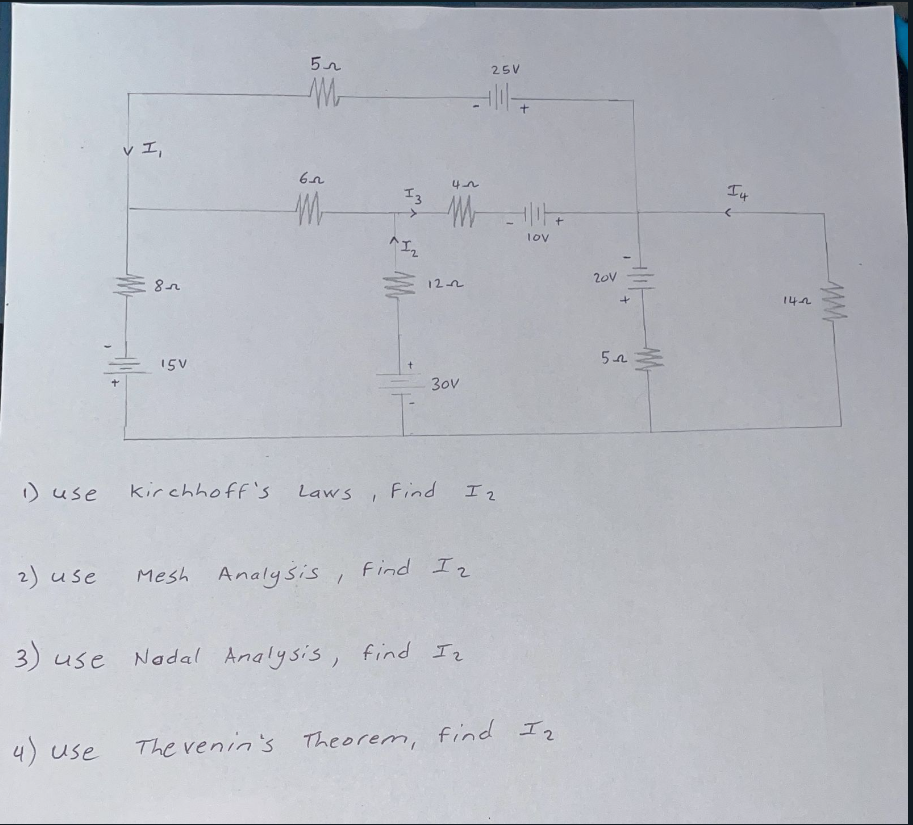 5Ω 25V
- +
I₁
6Ω I₃ 4Ω I₄
- +
I₂ 10V
-
8Ω 12Ω 20V 14Ω
+
- 15V + 5Ω
+ 30V
-
1) use Kirchhoff's Laws, Find I₂
2) use Mesh Analysis, Find I₂
3) use Nodal Analysis, find I₂
4) use Thevenin's Theorem, find I₂